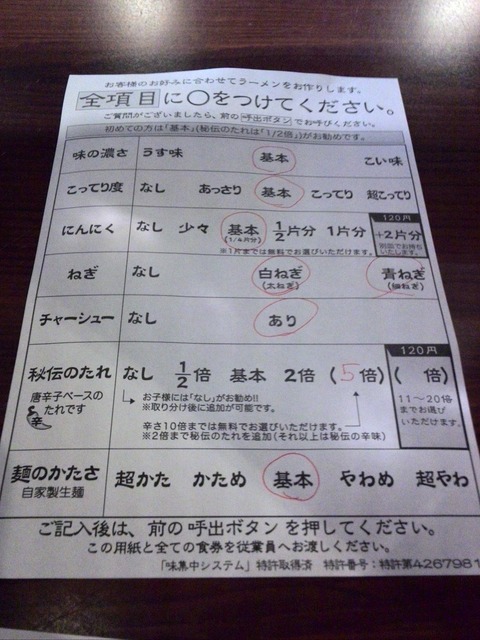 お客様のお好みに合わせてラーメンをお作りします。
全項目に〇をつけてください。
ご質問がございましたら、前の呼出ボタンでお呼びください。
初めての方は「基本」(秘伝のたれは「1/2倍」)がお勧めです。
味の濃さ うす味 基本 こい味
こってり度 なし あっさり 基本 こってり 超こってり
120円
にんにく なし 少々 基本 1/2片分 1片分 +2片分
(1/4片分)
※1片までは無料でお選びいただけます。
別皿でお持ちいたします。
ねぎ なし 白ねぎ 青ねぎ
(太ねぎ) (細ねぎ)
チャーシュー なし あり
120円
秘伝のたれ なし 1/2倍 基本 2倍 (5倍) ( 倍)
唐辛子ベースの
たれです
辛
お子様には「なし」がお勧め!!
※取り分け後に追加が可能です。
11〜20倍
までお選び
いただけます。
辛さ10倍までは無料でお選びいただけます。
※2倍まで秘伝のたれを追加(それ以上は秘伝の辛味)
麺のかたさ 超かた かため 基本 やわめ 超やわ
自家製生麺
ご記入後は、前の呼出ボタンを押してください。
この用紙と全ての食券を従業員へお渡しください。
「味集中システム」特許取得済 特許番号:特許第4267981